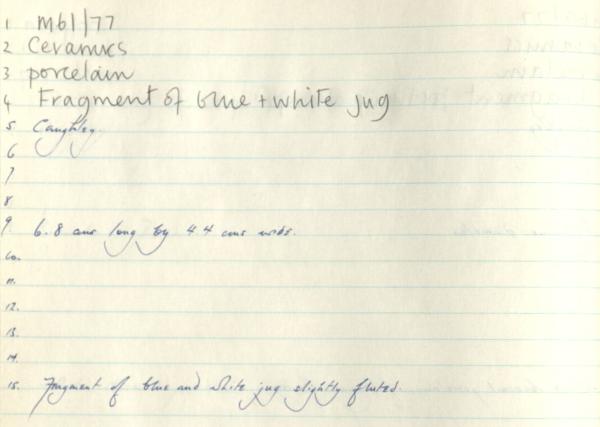 1 M61/77
2 Ceramics
3 porcelain
4 Fragment of blue + white jug
5 Caughley.
6
7
8
9. 6.8 cms long by 4.4 cms wide.
10.
11.
12.
13.
14.
15. Fragment of blue and white jug slightly fluted.